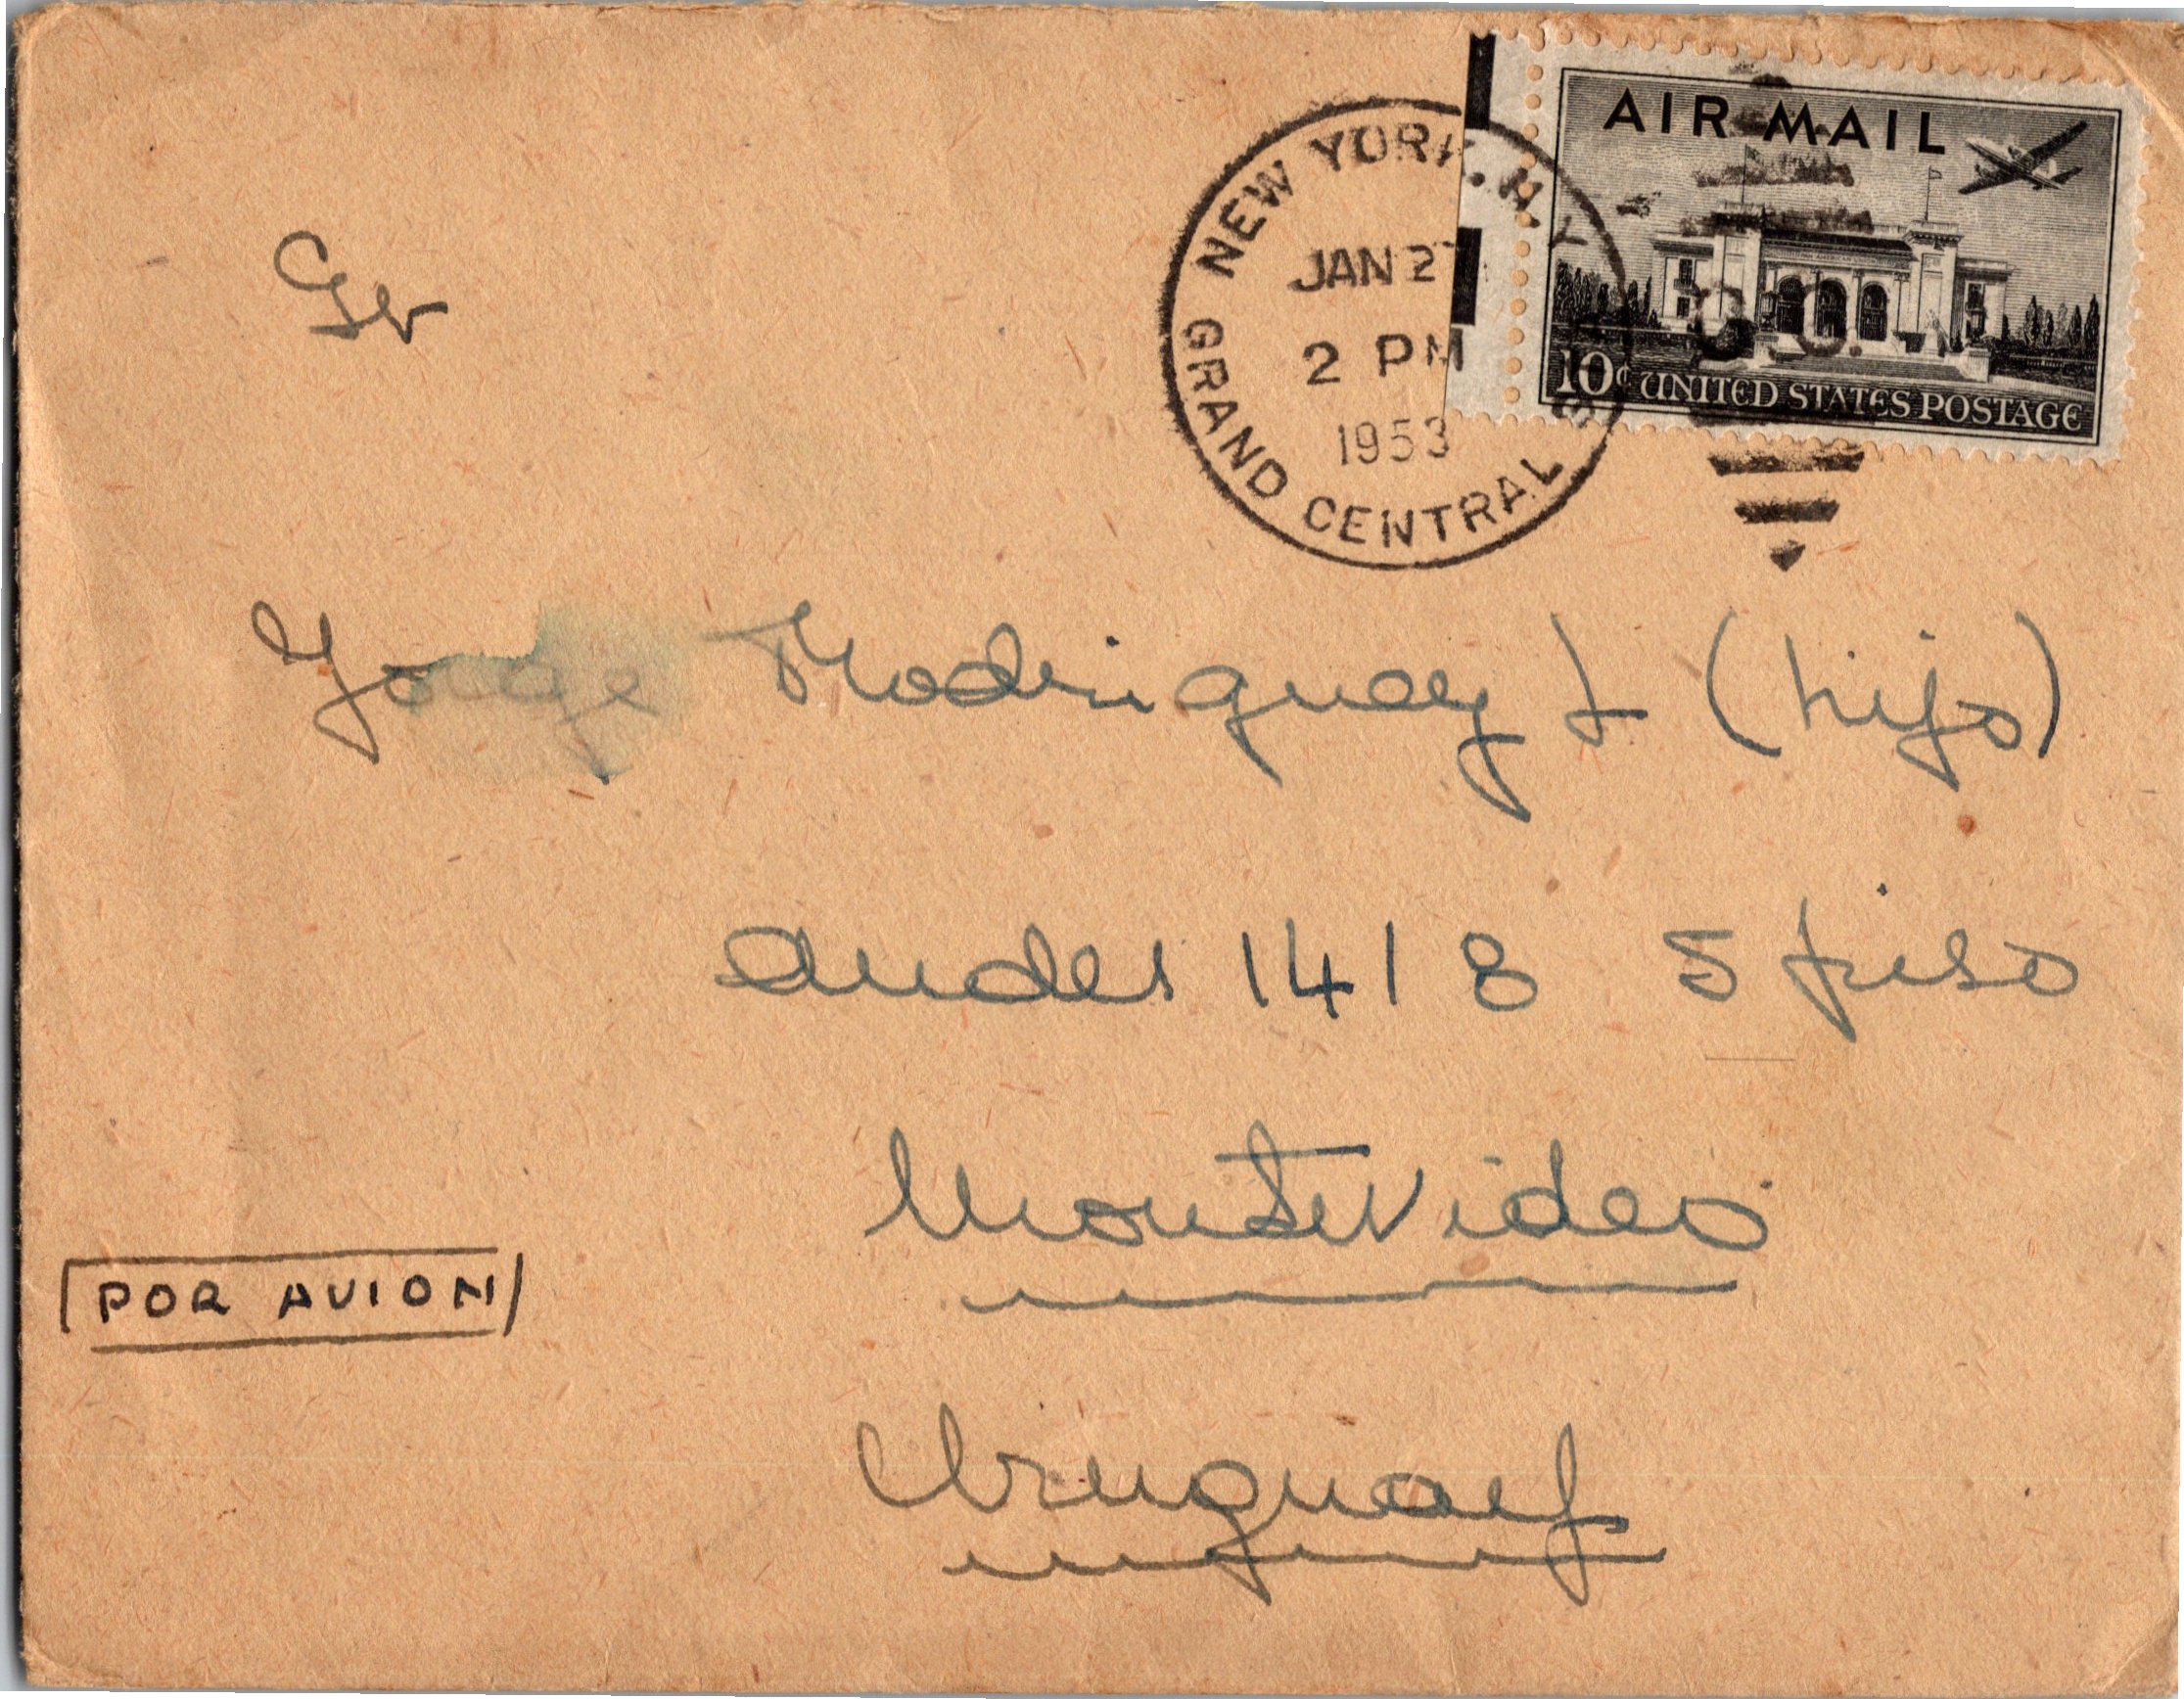 AIR MAIL
10¢ UNITED STATES POSTAGE
NEW YORK, N.Y.
JAN 27
2 PM
1953
GRAND CENTRAL
G.C.
Sr
Jorge Rodriguez L (hijo)
Andes 1418 5 piso
Montevideo
POR AVION
Uruguay